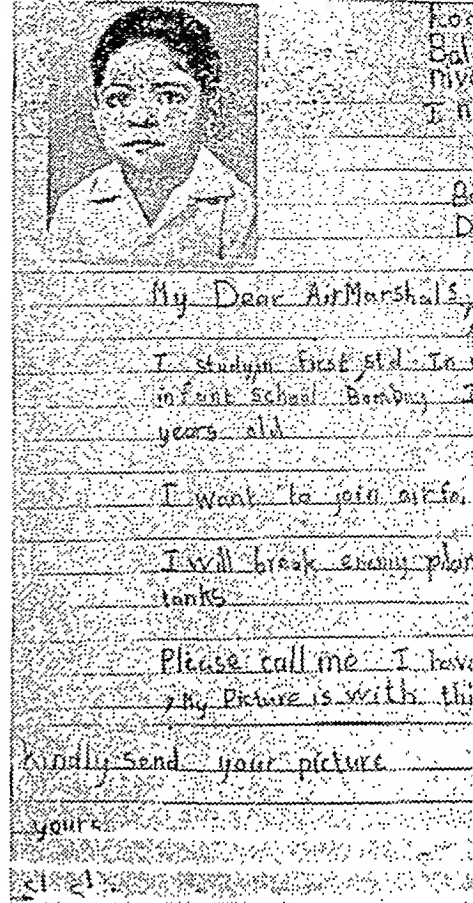 Bal
My
I
My Dear AirMarshals,
I study in first std. In
infant school Bombay I
years old
I want to join airfo
I will break enemy plan
tanks
Please call me I hav
, My Picture is with thi
Kindly send your picture
yours